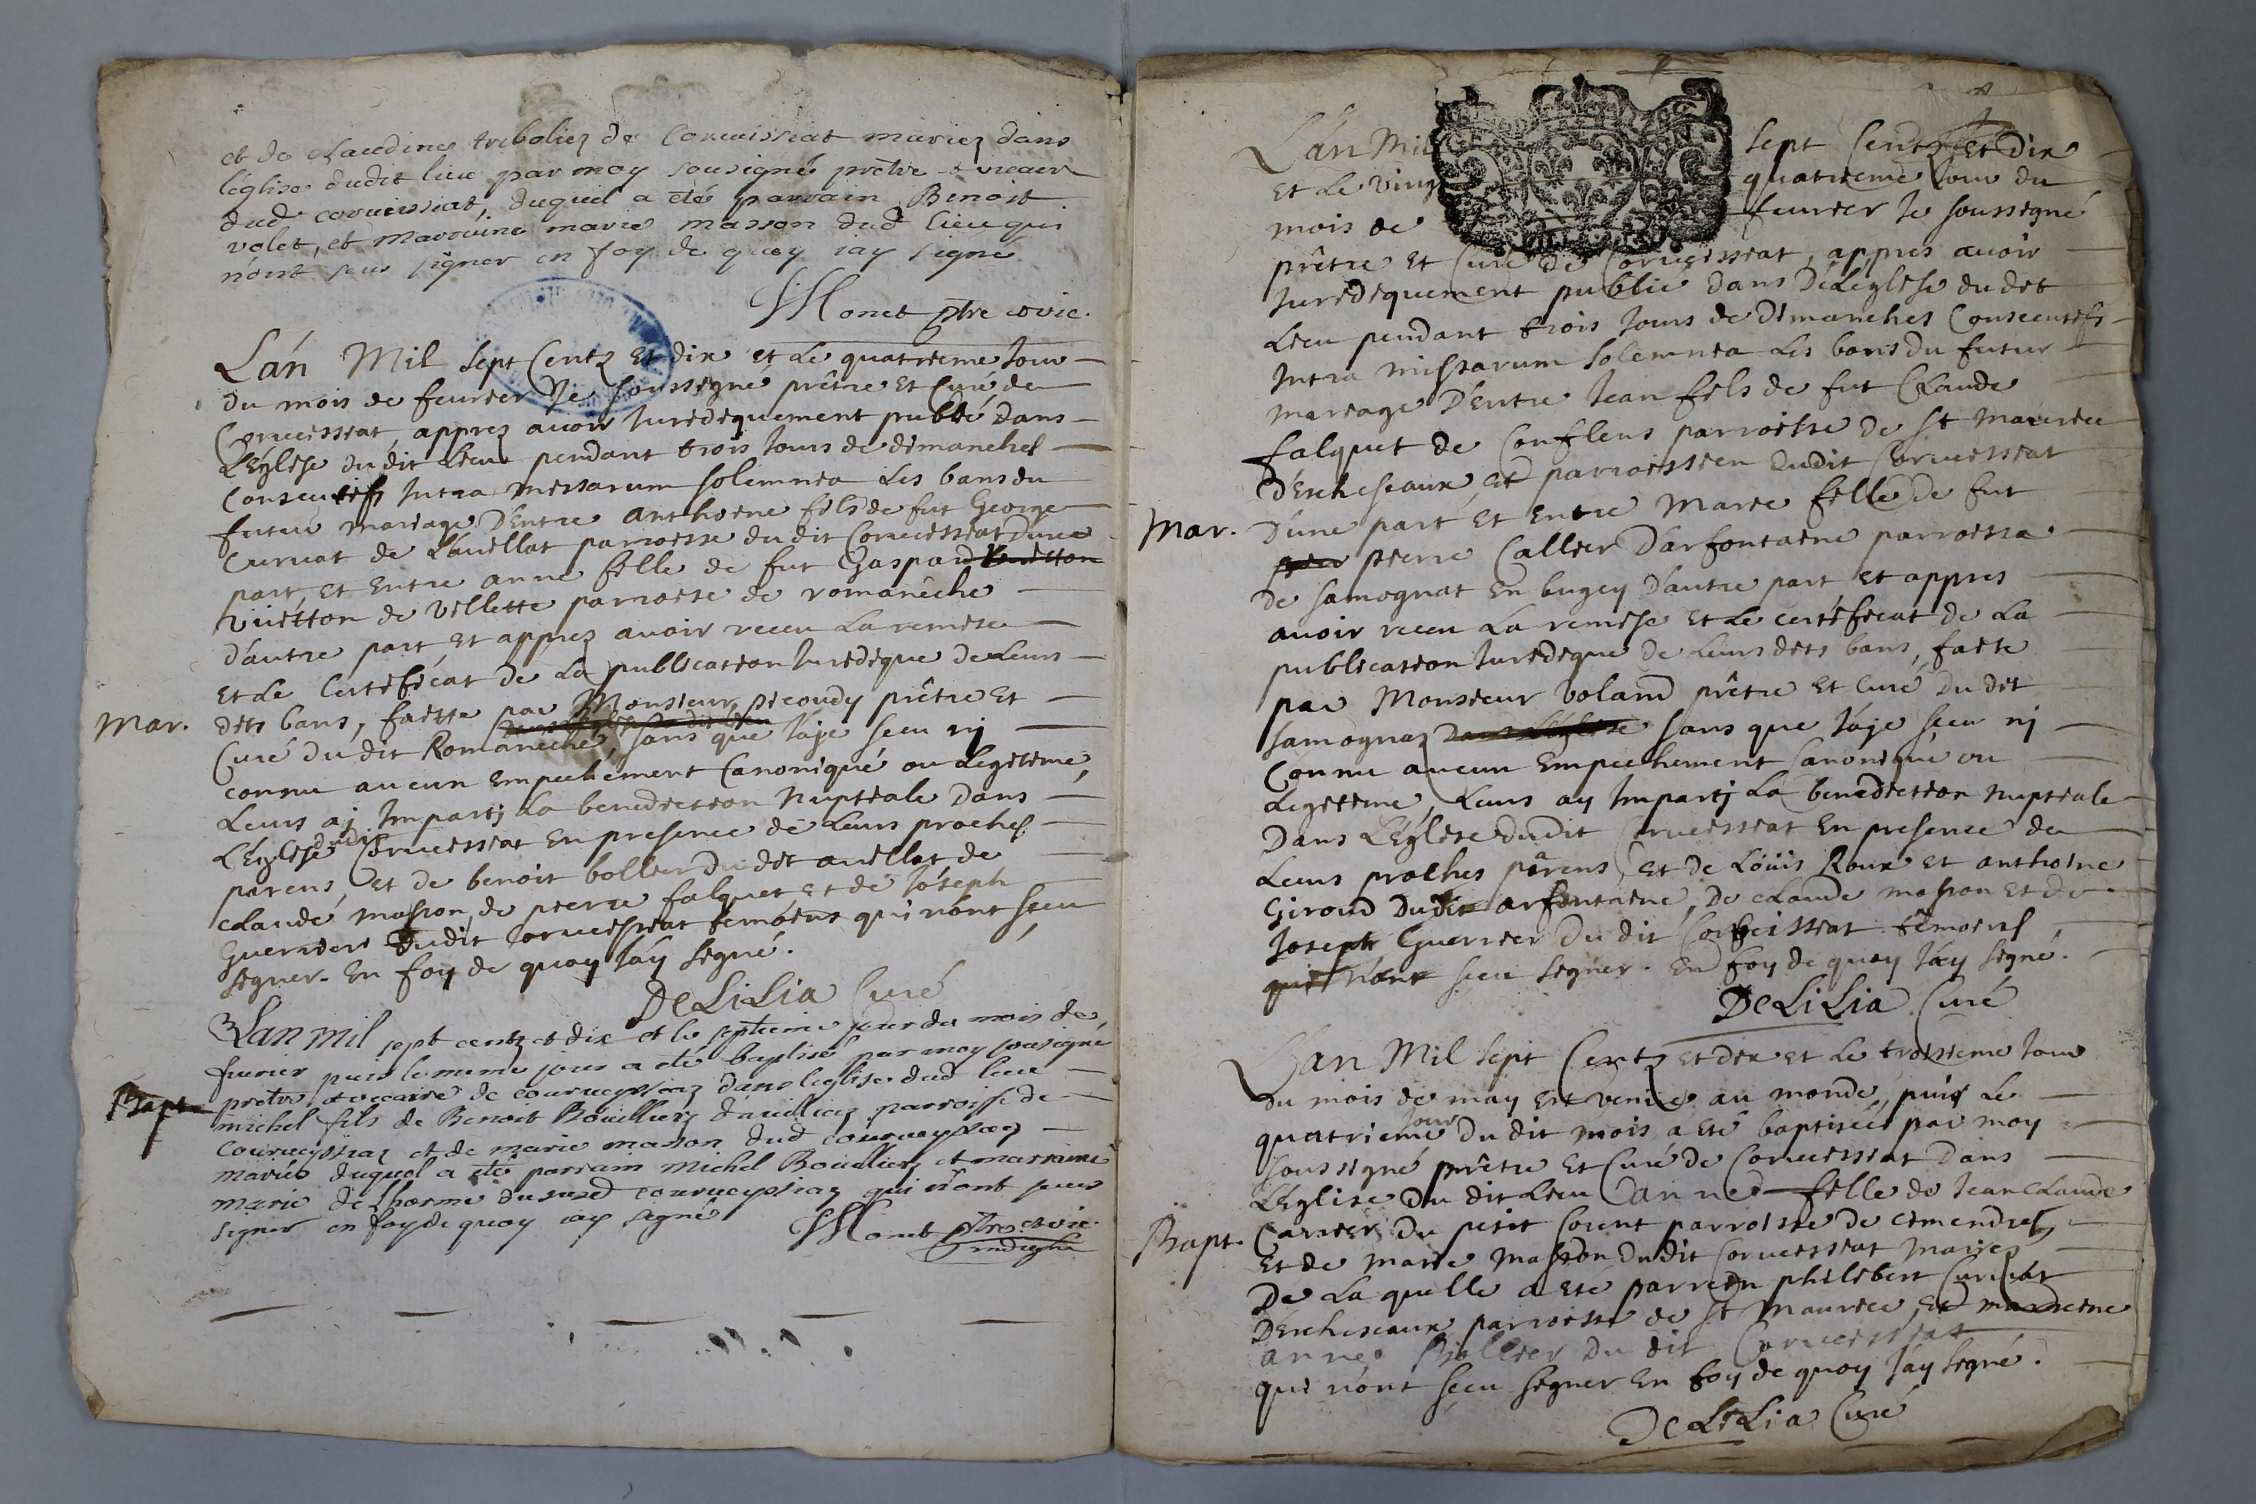 et de claudine treboliez de Corueissiat mariez dans
léglise dudit lieu par moy sousigné prêtre & vicaire
dud corueissiat, duquel a eté parrain Benoist
volet, et marraine marie masson dud lieu qui
n'ont sceu signer en foy de quoy iay signé
Monet ptre & vic.
L'an Mil sept Centz Et dix et Le quatrieme Jour
Du mois de feurier Je soussigné prêtre Et Curé de
Corueissiat, apprez auoir Juridiquement publié dans
L'Eglise du dit Lieu pendant trois Jours de dimanches
Consecutifs Intra missarum solemnia Les bans du
futur mariage D'Entre anthoine fils de fut George
Curuat de L'auellat parroisse du dit Corueissiat D'une
part, Et Entre anne fille de fut Gaspard
Vuitton de Villette parroisse de romanêche
D'autre part, Et apprez auoir receu La remise
Et Le Certificat de La publication Juridique de Leurs
Mar.
dits bans, faitte par Monsieur picoudy prêtre Et
Curé du dit Romanêche, sans que J'aje sceu nj
connu aucun Empechement Canonique ou Legitime,
Leurs aj Impartj La benediction Nuptiale Dans
L'Eglise dudit Corueissiat En presence de Leurs proches
parens, Et de benoit bollier Du dit auellat de
claude masson, de pierre falquet Et de Joseph
Guerrier dudit corueissiat temoins qui n'ont sceu
signer. En foy de quoy J'ay signé.
DeLiLia Curé
L'an mil sept centz et dix et le septieme jour du mois de
feurier puis le meme jour a eté baptisé par moy sousigné
Bapt.
prêtre & vicaire de courueyssiaz dans leglise dud lieu
michel fils de Benoit Bouillier d'auiliaz parroisse de
Courueyssiaz et de marie masson dud courueyssiaz
mariés duquel a eté parrain michel Bouillier, et marraine
marie de Lhorme du susd courueyssiaz qui n'ont sceu
signer en foy de quoy iay signé
Monet ptre & vic.
L'an Mil sept Centz Et Dix
Et Le Vingt quatrieme Jour du
mois de feurier Je soussigné
prêtre Et Curé de Corueissiat, appres auoir
Juridiquement publié dans L'Eglise du dit
Lieu pendant trois Jours de Dimanches Consecutifs
Intra missarum solemnia Les bans Du futur
mariage D'Entre Jean fils de fut Claude
falquet de Conflens parroisse de St Maurice
D'Escheseaux, et parroissien dudit Corueissiat
Mar.
D'une part, Et Entre Marie fille de fut
pierre Callier D'arfontaine parroisse
de samognat En bugey D'autre part Et appres
auoir receu La remise Et Le certificat de La
publication Juridique de Leurs dits bans, faite
par Monsieur Voland prêtre Et Curé Du dit
samognaz dans L'Eglise sans que J'aje sceu nj
Connu aucun Empechement Canonique ou
Legitime, Leurs ay Impartj La benediction nuptiale
Dans L'Eglise dudit Corueissiat En presence de
Leurs proches parens, Et de Löuis Roux Et anthoine
Giroud Dudit arfontaine, De claude masson Et de
Joseph Guerrier Du dit Corueissiat. têmoins
qui n'ont sceu signer. En foy de quoy J'ay signé.
DeLiLia Curé
L'an Mil sept Centz Et Dix Et Le troisieme Jour
Du mois de may Est venue au monde, puis Le
quatrieme Jour Du dit mois a eté baptisée par moy
soussigné prêtre Et Curé De Corueissiat Dans
L'Eglise Du dit Lieu anne fille de Jean Claude
Carrier Du petit Corent parroisse De cimendres
Bapt.
Et de marie masson Du dit Corueissiat Mariez
De La quelle a eté parrein philibert Curuat
D'Escheseaux parroisse de st maurice, Et marreine
anne Bollier Du dit Corueissiat
qui n'ont sceu signer En foy de quoy J'ay signé.
DeLiLia Curé